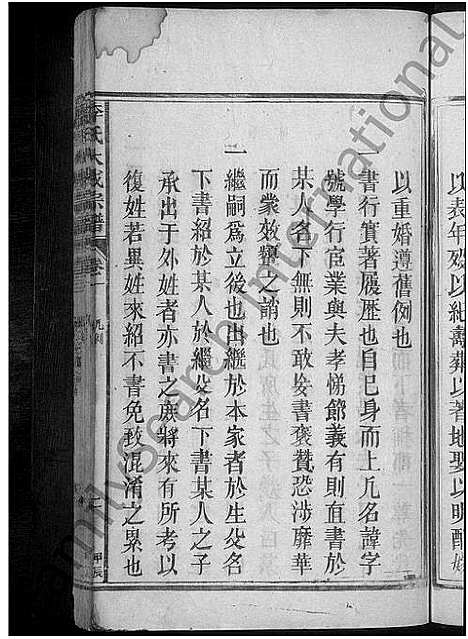 以表年歿以紀壽葬以著地娶以明配
以重婚遵舊例也
一書行實著履歷也自巳身而上凡名諱字
號學行宦業與夫孝悌節義有則直書於
某人名下無則不敢妄書褒贊恐涉靡華
而蒙效顰之誚也
一繼嗣爲立後也出繼於本家者於生父名
下書紹於某人於繼父名下書某人之子
承出于外姓者亦書之庶將來有所考以
復姓若異姓來紹不書免致混淆之累也
李氏大成宗譜 卷一 凡例
familysearch international